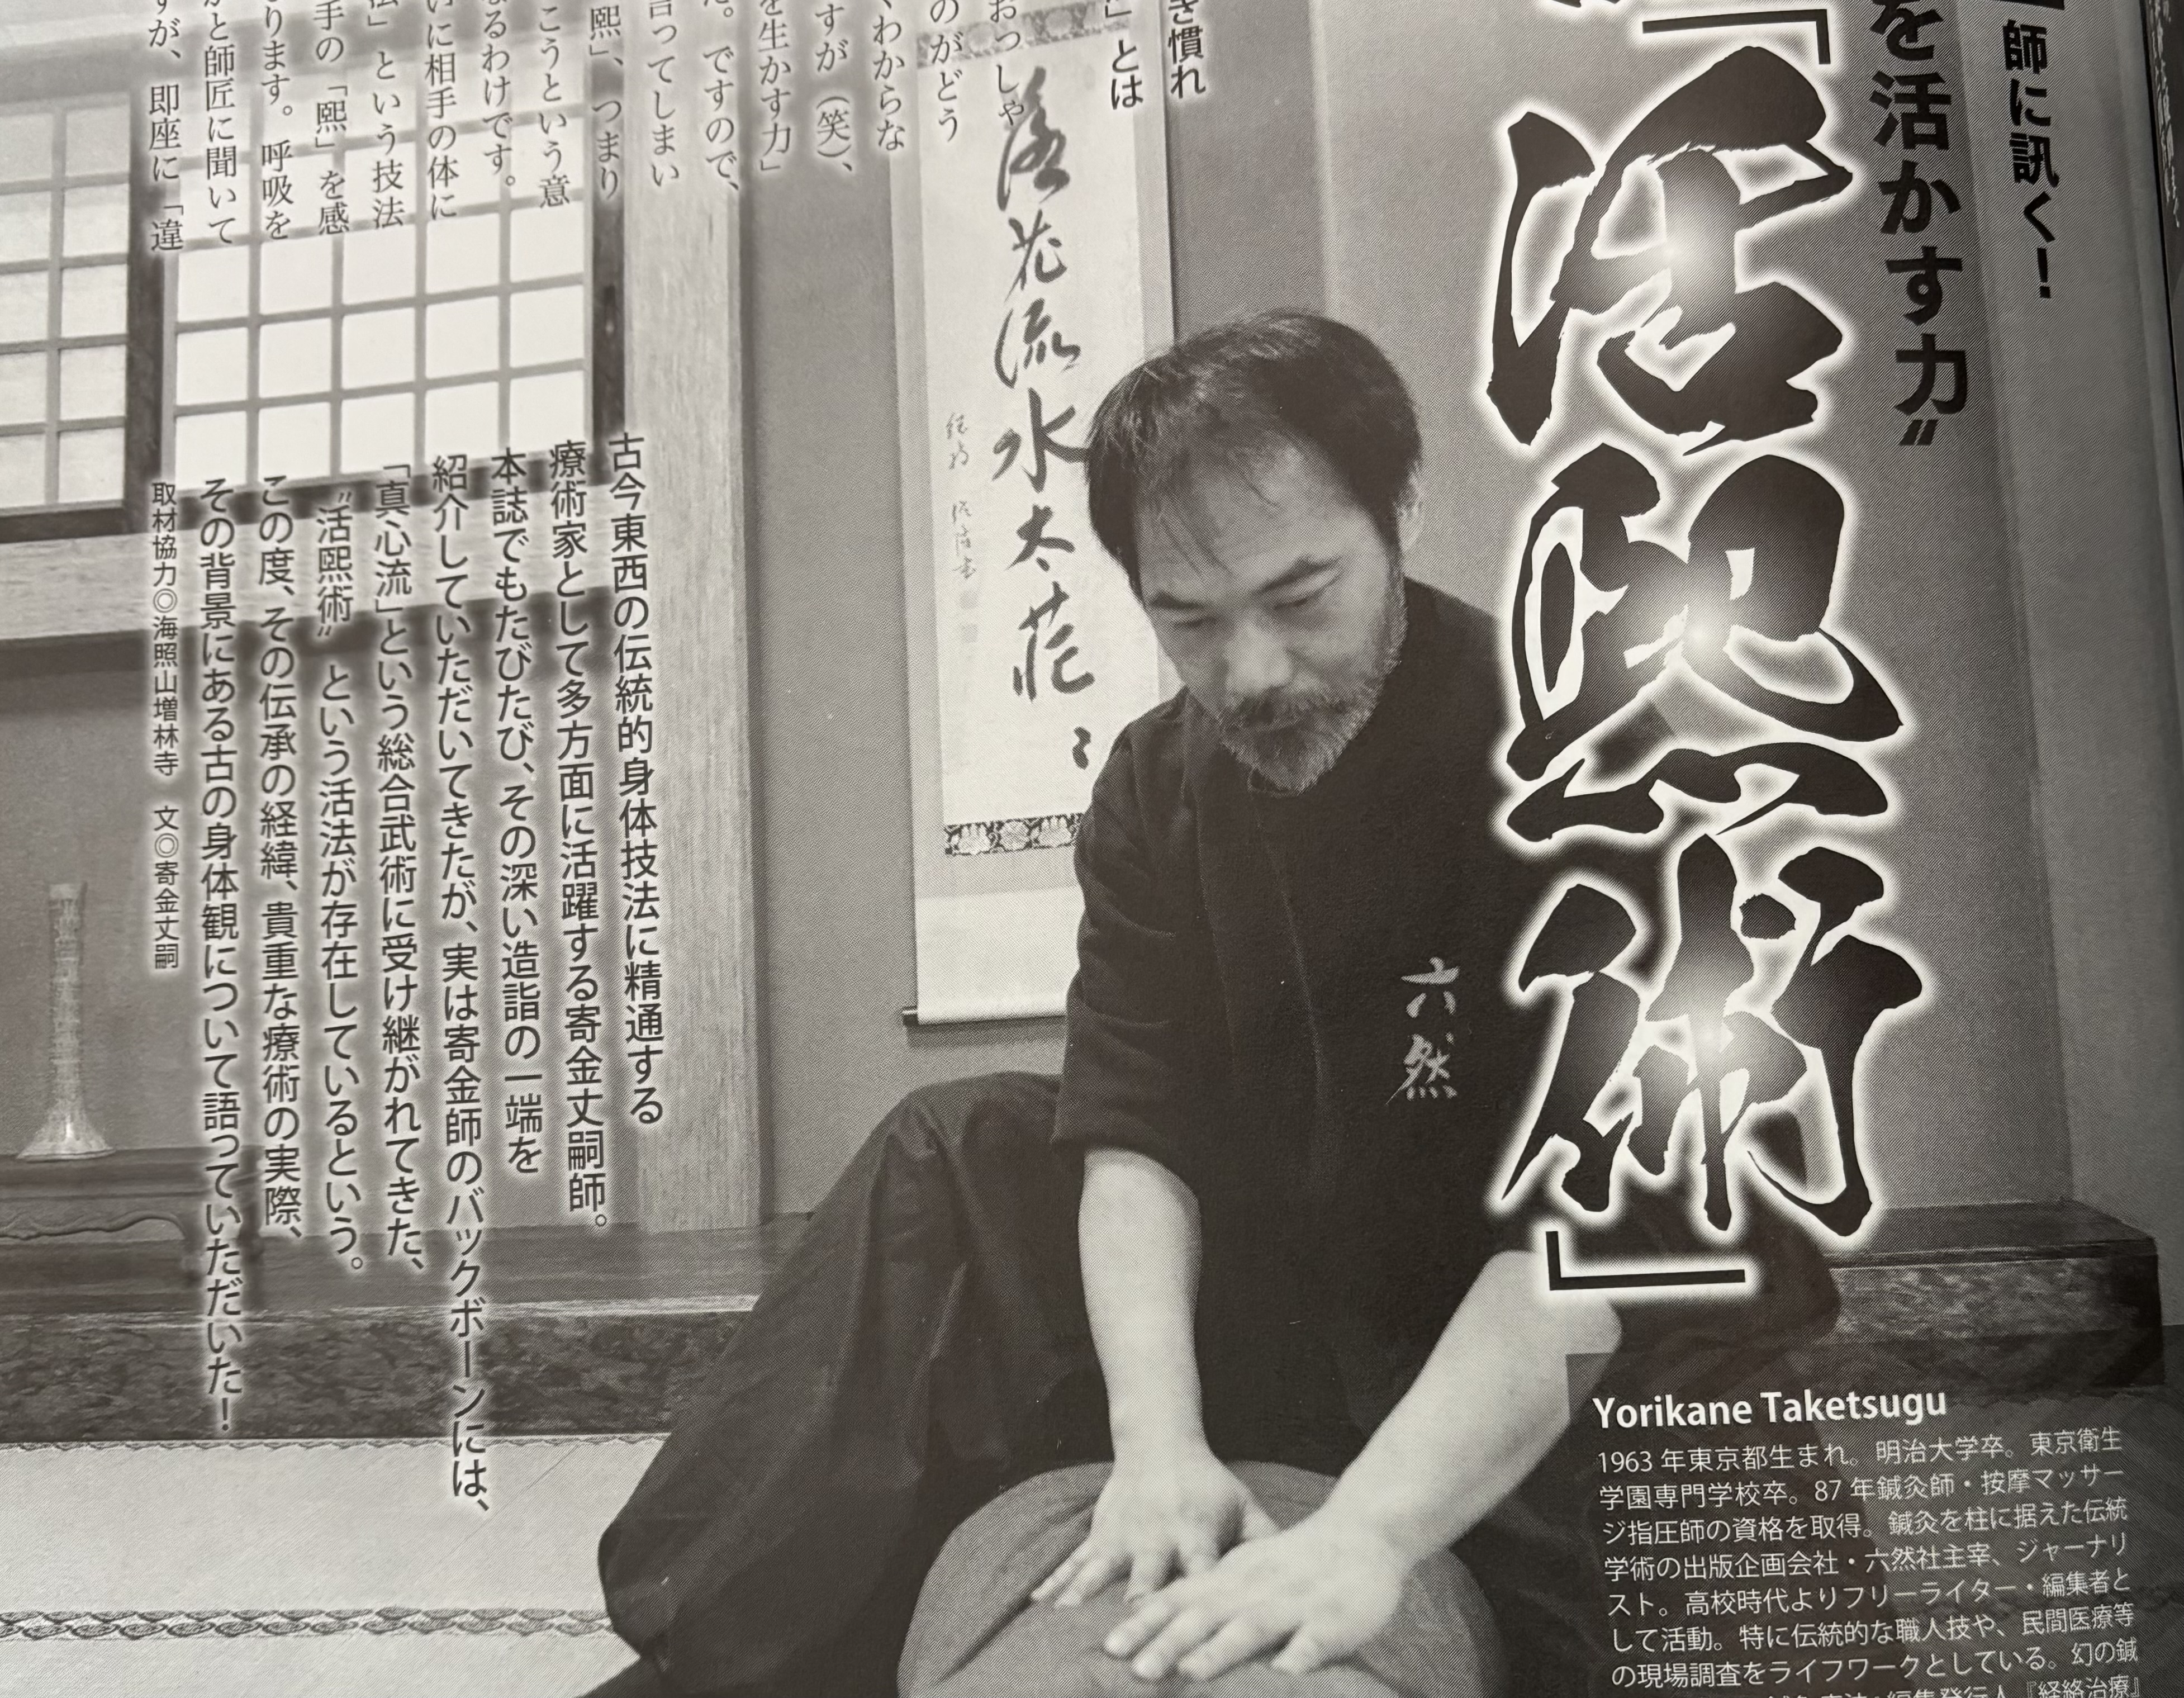 師に訊く!
を活かす力〟
「活熙術」
き慣れ
」とは
おっしゃ
のがどう
くわからな
すが(笑)、
を生かす力」
た。ですので、
言ってしまい
熙」、つまり
こうという意
なるわけです。
いに相手の体に
法」という技法
手の「熙」を感
ります。呼吸を
かと師匠に聞いて
すが、即座に「違
落花流水太茫々
六然
古今東西の伝統的身体技法に精通する
療術家として多方面に活躍する寄金丈嗣師。
本誌でもたびたび、その深い造詣の一端を
紹介していただいてきたが、実は寄金師のバックボーンには、
「真心流」という総合武術に受け継がれてきた、
〝活熙術〟という活法が存在しているという。
この度、その伝承の経緯、貴重な療術の実際、
その背景にある古の身体観について語っていただいた!
取材協力◎海照山増林寺 文◎寄金丈嗣
Yorikane Taketsugu
1963 年東京都生まれ。明治大学卒。東京衛生
学園専門学校卒。87 年鍼灸師・按摩マッサー
ジ指圧師の資格を取得。鍼灸を柱に据えた伝統
学術の出版企画会社・六然社主宰、ジャーナリ
スト。高校時代よりフリーライター・編集者と
して活動。特に伝統的な職人技や、民間医療等
の現場調査をライフワークとしている。幻の鍼
編集発行人『経絡治療』